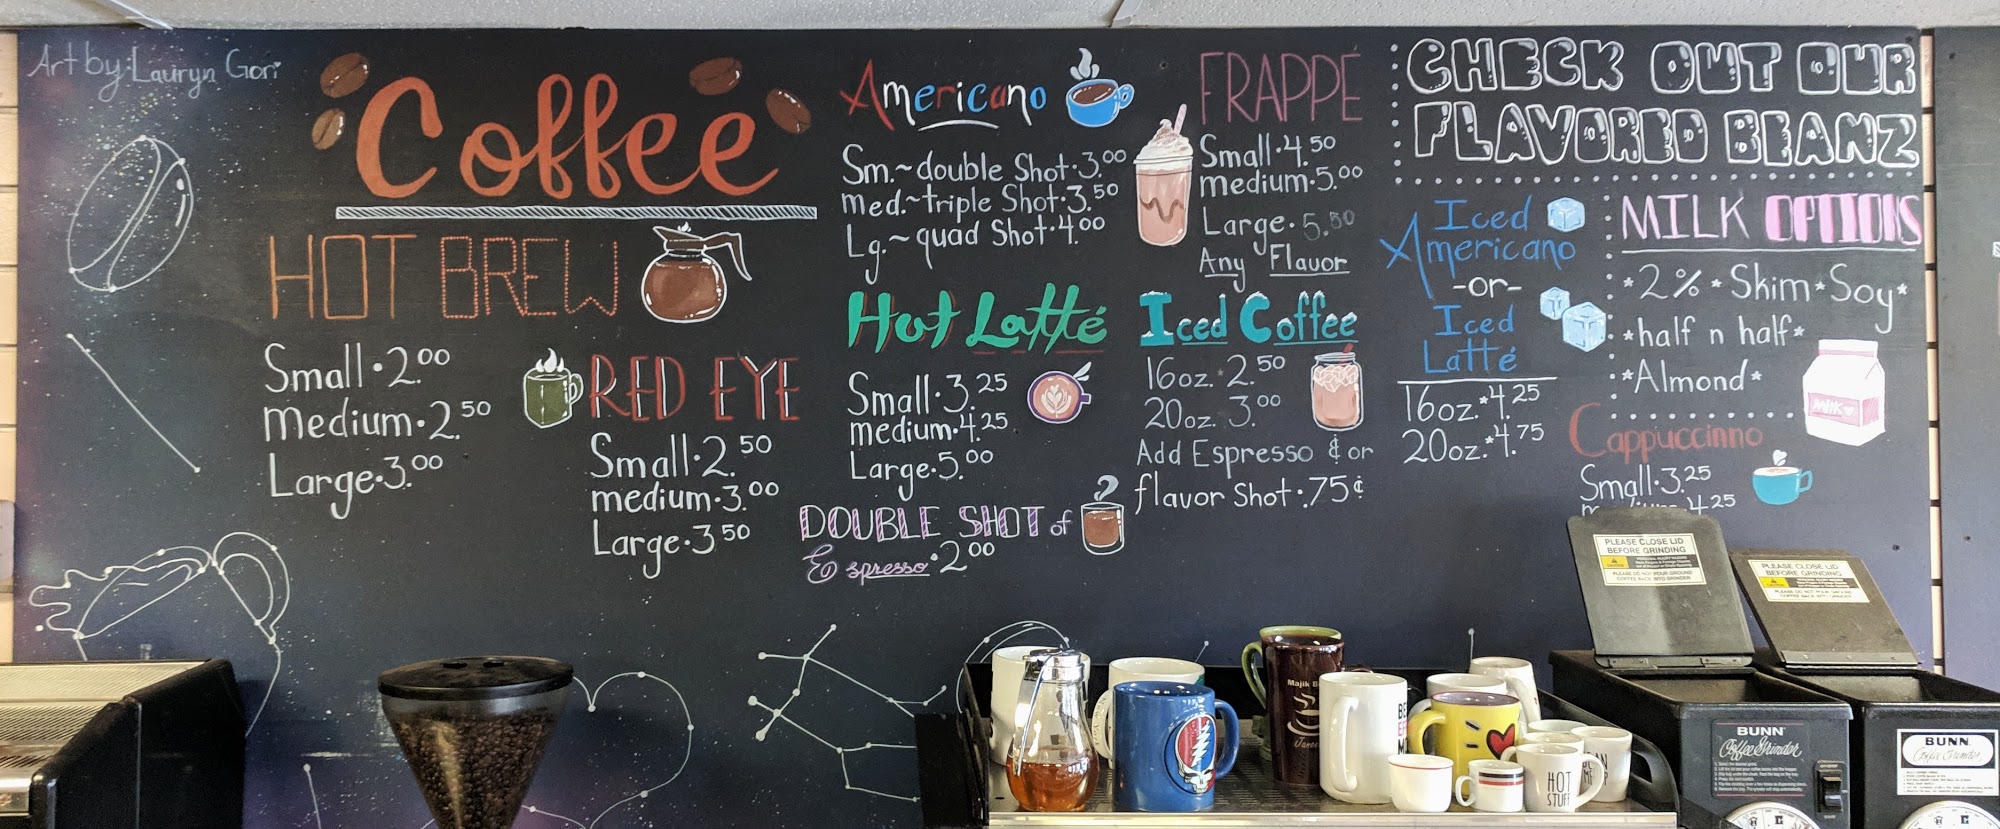 Art by: Lauryn Gori
Coffee
HOT BREW
Small · 2.00
medium · 2.50
Large · 3.00
RED EYE
Small · 2.50
medium · 3.00
Large · 3.50
Americano
Sm. ~ double Shot · 3.00
med. ~ triple Shot · 3.50
Lg. ~ quad Shot · 4.00
Hot Latté
Small · 3.25
medium · 4.25
Large · 5.00
DOUBLE SHOT of
Espresso · 2.00
FRAPPÉ
Small · 4.50
medium · 5.00
Large · 5.50
Any Flavor
Iced Coffee
16oz. 2.50
20oz. 3.00
Add Espresso ¢ or
flavor Shot · .75¢
CHECK OUT OUR
FLAVORED BEANZ
Iced
Americano
-or-
Iced
Latté
16oz. * 4.25
20oz. * 4.75
MILK OPTIONS
* 2% * Skim * Soy *
* half n half *
* Almond *
MILK
Cappuccinno
Small · 3.25
medium 4.25
PLEASE CLOSE LID
BEFORE GRINDING
PLEASE CLOSE LID
BEFORE GRINDING
BUNN
Coffee Grinder
BUNN
Coffee Grinder
Majik
HOT
STUFF